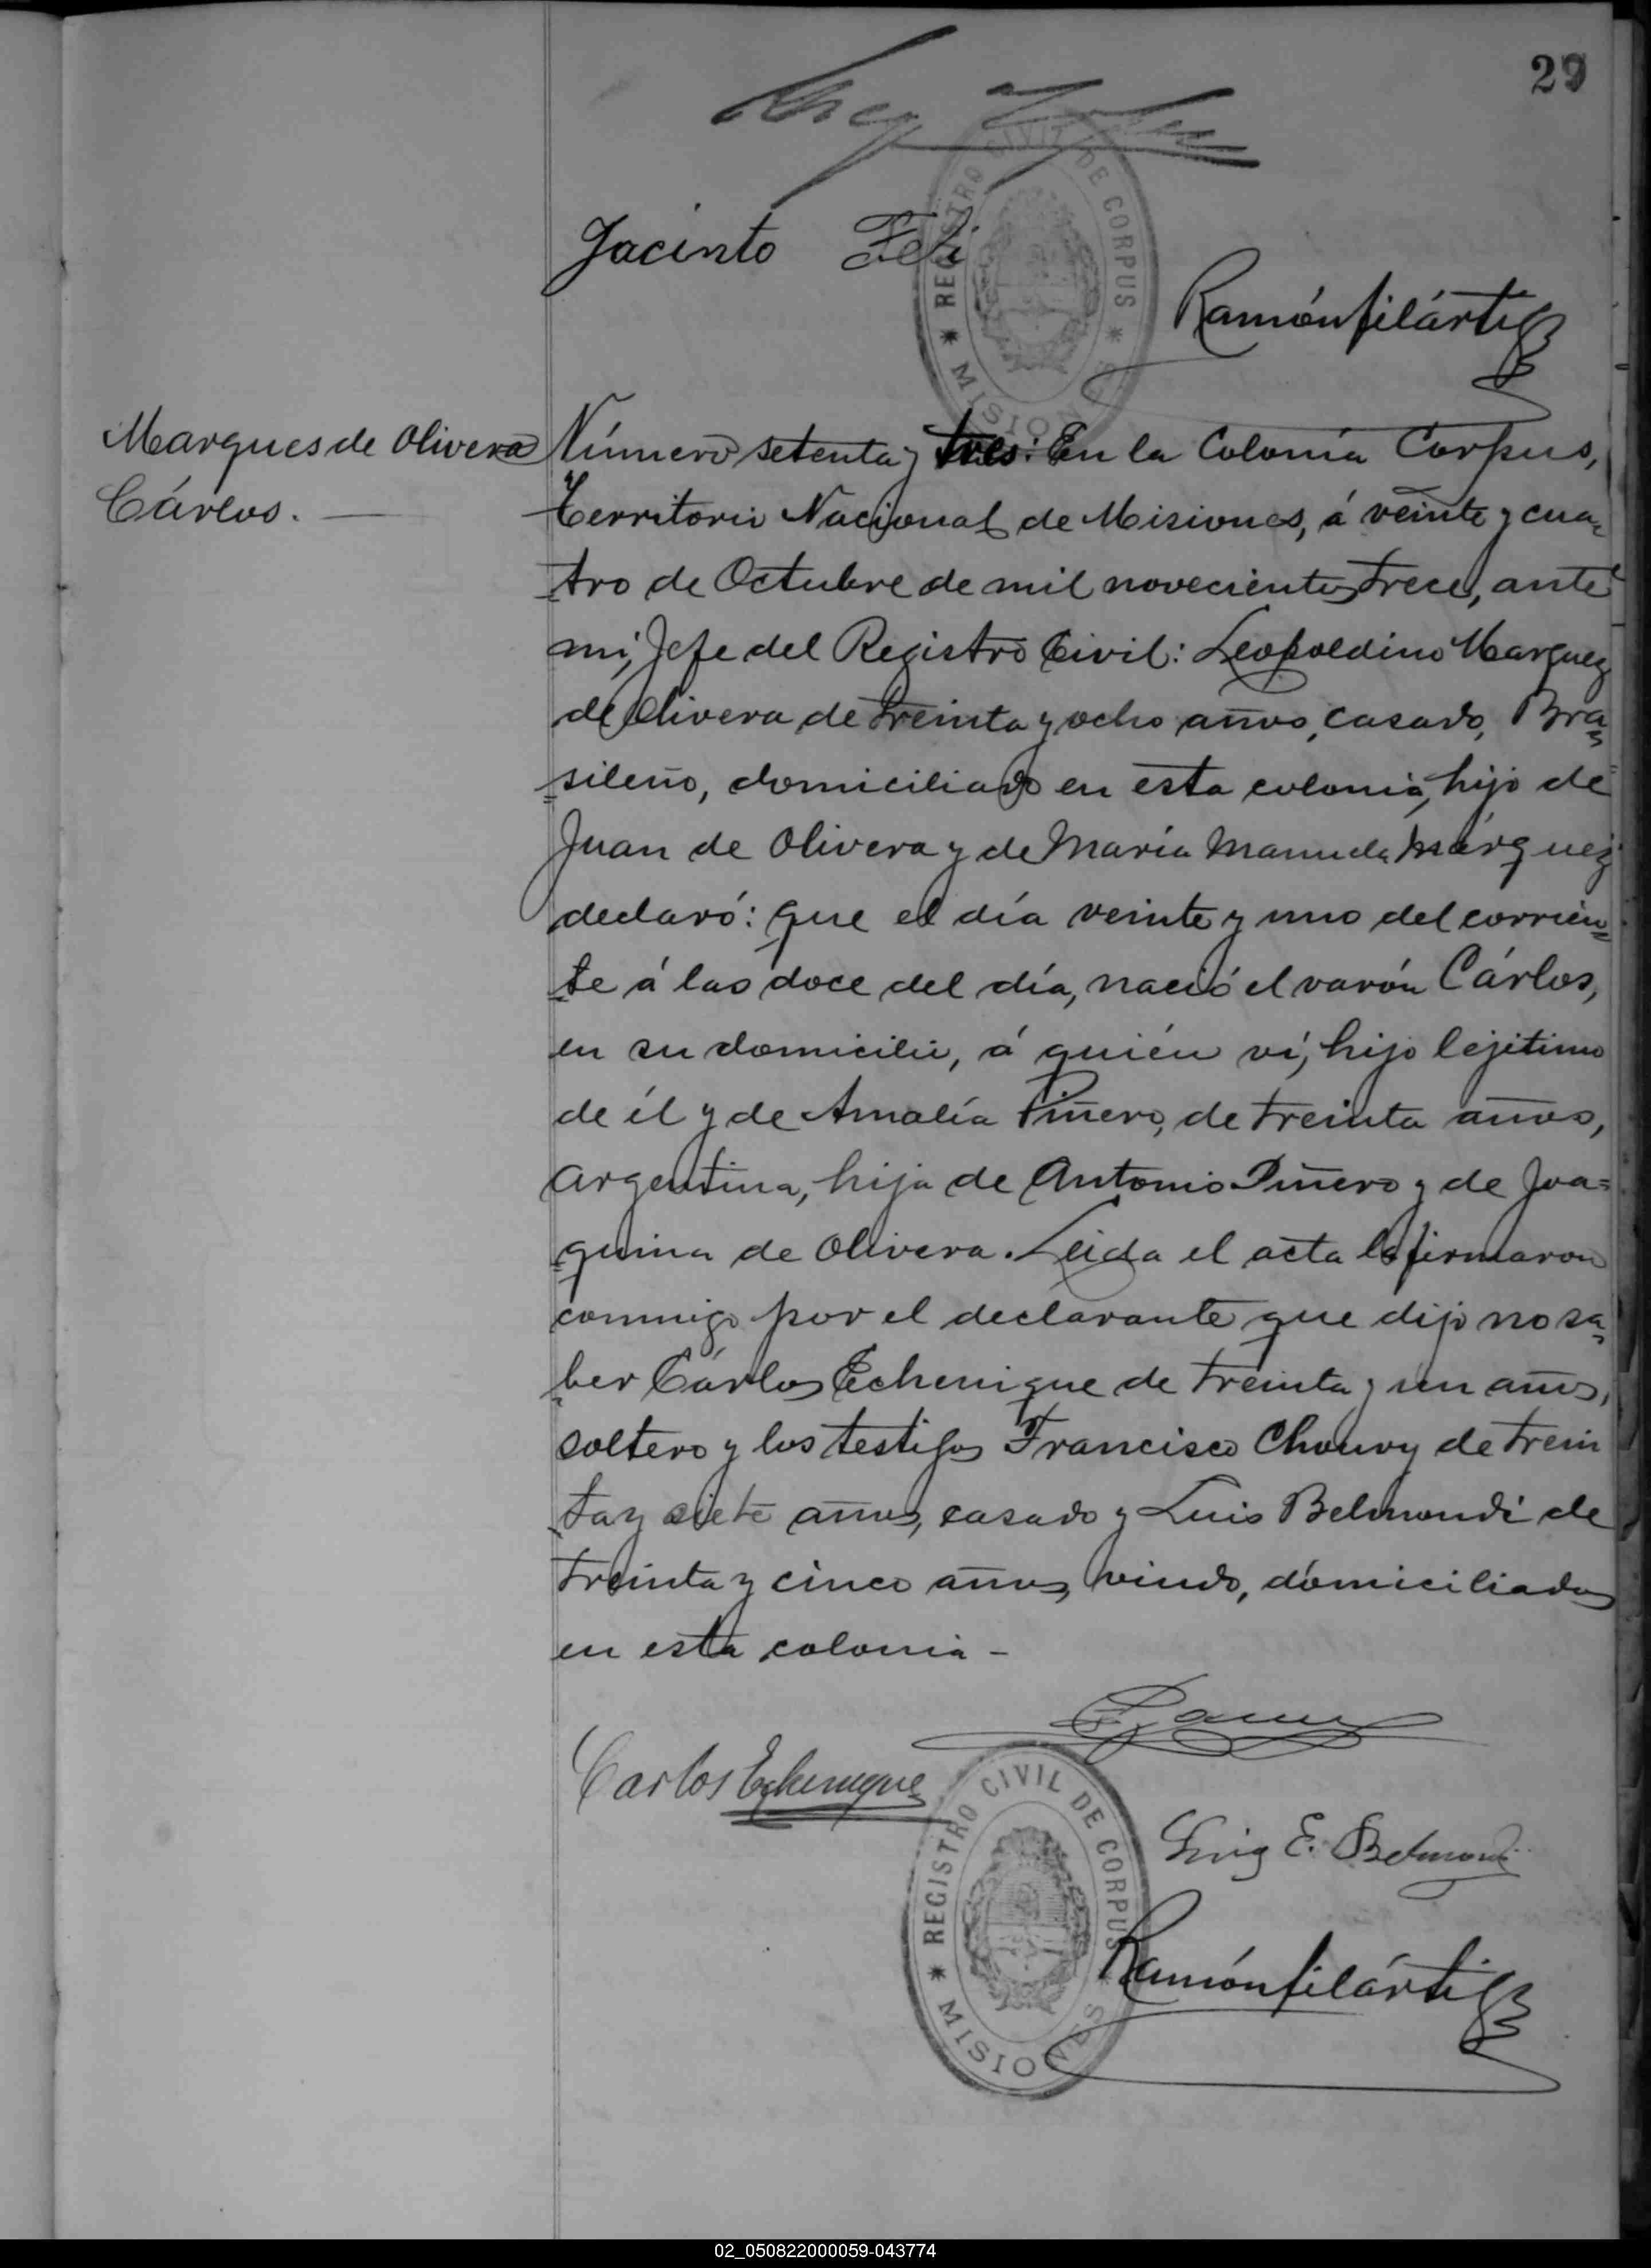 29
REGISTRO CIVIL DE CORPUS
* MISIONES *
Jacinto
Ramón Filártiga
Marques de Olivera
Cárlos. —
Número setenta y tres: En la Colonia Corpus,
Territorio Nacional de Misiones, á veinte y cua-
tro de Octubre de mil novecientos trece, ante
mi, Jefe del Registro Civil: Leopoldino Marquez
de Olivera de treinta y ocho años, casado, Bra=
=sileño, domiciliado en esta colonia, hijo de
Juan de Olivera y de María Manuela Márquez
declaró: que el día veinte y uno del corrien=
=te á las doce del día, nació el varón Cárlos,
en su domicilio, á quién ví, hijo lejitimo
de él y de Amalia Piñero, de treinta años,
Argentina, hija de Antonio Piñero y de Joa=
=quina de Olivera. Leida el acta la firmaron
conmigo por el declarante que dijo no sa=
=ber Cárlos Echenique de treinta y un años,
soltero y los testigos Francisco Chouvy de trein
ta y siete años, casado y Luis Belmondi de
treinta y cinco años, viudo, domiciliados
en esta colonia -
Carlos Echenique
REGISTRO CIVIL DE CORPUS
* MISIONES *
Luis E. Belmondi
Ramón Filártiga
02_050822000059-043774